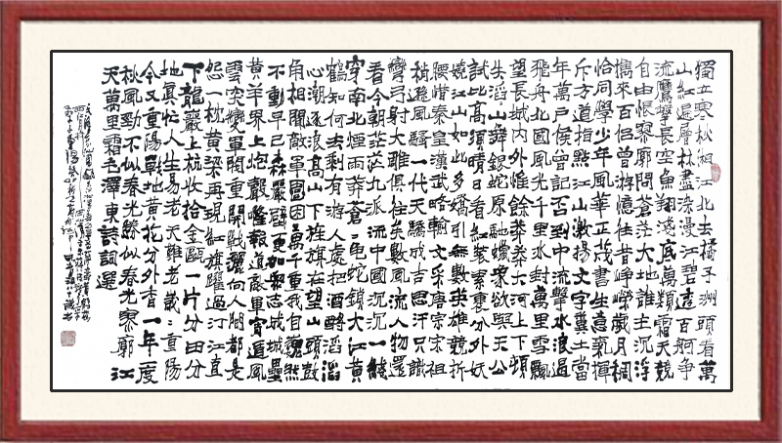 獨立寒秋湘江北去橘子洲頭看萬
山紅遍層林盡染漫江碧透百舸爭
流鷹擊長空魚翔淺底萬類霜天競
自由悵寥廓問蒼茫大地誰主沉浮
攜來百侶曾游憶往昔崢嶸歲月稠
恰同學少年風華正茂書生意氣揮
斥方遒指點江山激揚文字糞土當
年萬戶侯曾記否到中流擊水浪遏
飛舟北國風光千里冰封萬里雪飄
望長城內外惟餘莽莽大河上下頓
失滔山舞銀蛇原馳蠟象欲與天公
試比高須晴日看紅裝素裹分外妖
嬈江山如此多嬌引無數英雄競折
腰惜秦皇漢武略輸文采唐宗宋祖
稍遜風騷一代天驕成吉思汗只識
彎弓射大雕俱往矣數風流人物還
看今朝茫茫九派流中國沉沉一線
穿南北煙雨莽蒼二龜蛇鎖大江黃
鶴知何去剩有游人處把酒酹滔滔
心潮逐浪高山下旌旗在望山頭鼓
角相聞敵軍圍困萬千重我自巍然
不動早已森嚴壁更加眾志成城壘
黃羊界上炮聲隆報道敵軍宵遁風
雲突變軍閥重開戰灑向人間都是
怨一枕黃粱再現紅旗躍過汀江直
下龍巖上杭收拾金甌一片分田分
地真忙人生易老天難老歲二重陽
今又重陽戰地黃花分外香一年度
秋風勁不似春光勝似春光寥廓江
天萬里霜毛澤東詩詞選